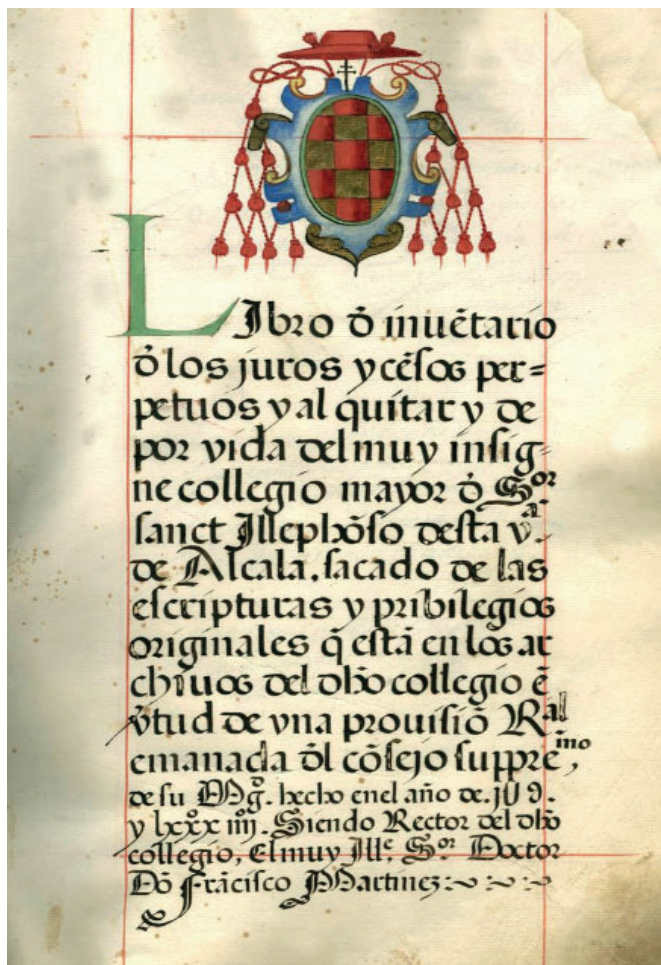 LIbro ð inuẽtario
ð los juros y cẽsos per=
petuos y al quitar y de
por vida del muy insig-
ne collegio mayor ð Sor
sanct Illephõso desta va.
de Alcala. sacado de las
escripturas y pribilegios
originales q̃ estã en los ar
chiuos del dho collegio ẽ
vtud de vna prouisiõ Ral
emanada ðl cõsejo suppremo,
de su Mgd. hecho en el año de.
y lxxx iiij. Siendo Rector del dho
collegio, El muy Ille. Sor Doctor
Dõ Frãcisco Martinez